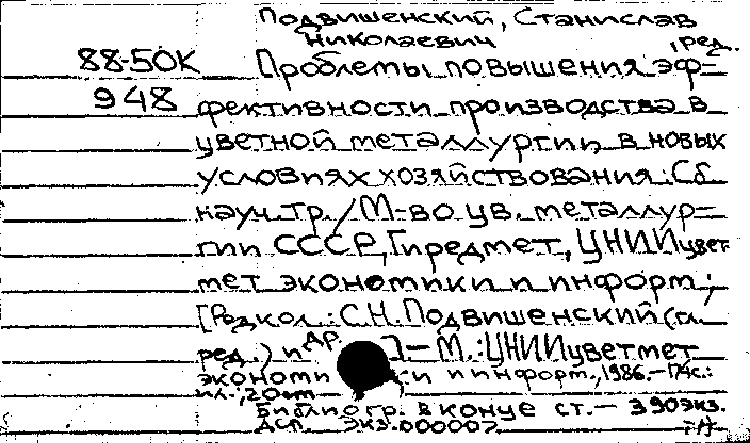 Подвишенский, Станислав
Николаевич , ред.
88-50К Проблемы повышения эф-
948 фективности производства в
цветной металлургии в новых
условиях хозяйствования: Сб.
науч. тр. / М-во цв. металлур-
гии СССР, Гиредмет, ЦНИИцвет
мет экономики и информ.;
[Редкол.: С.Н. Подвишенский (гл.
ред.) и др.] — М.: ЦНИИцветмет
экономики и информ., 1986. — 174с.:
ил.; 20 см
Библиогр. в конце ст. — 390экз.
ДСП. Экз. 000007